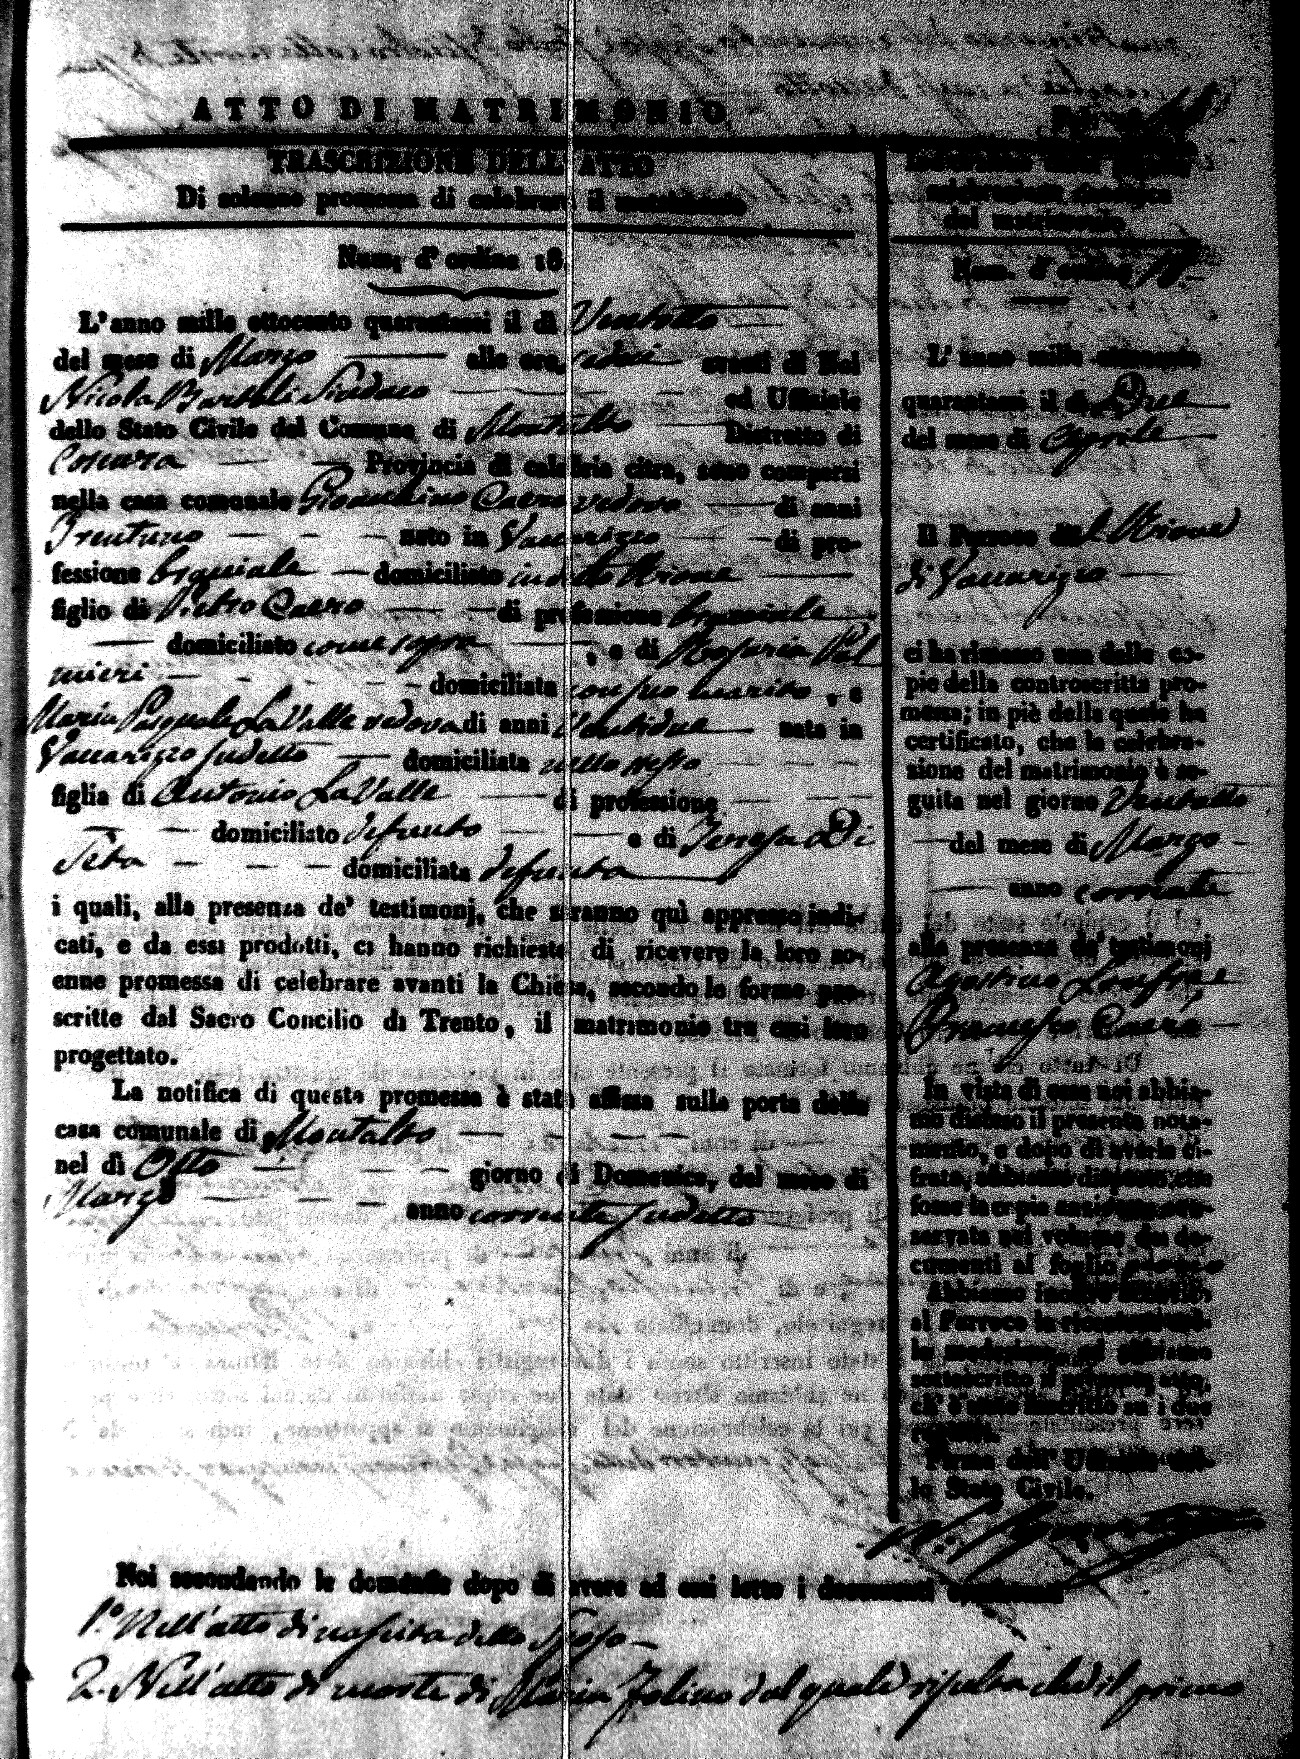 ATTO DI MATRIMONIO
TRASCRIZIONE DELL' ATTO
Di solenne promessa di celebrare il matrimonio
Num. d' ordine 18.
L'anno mille ottocento quarantasei il dì Ventotto
del mese di Marzo alle ore sedici avanti di Noi
Nicola Bartoli Sindaco ed Uffiziale
dello Stato Civile del Comune di Montalto Distretto di
Cosenza Provincia di calabria citra, sono comparsi
nella casa comunale Gioacchino Caero vedovo di anni
Trentuno nato in Vaccarizzo di pro-
fessione braciale domiciliato in detto Rione
figlio di Pietro Caero di professione braciale
domiciliato come sopra , e di Rosaria Pal
mieri domiciliata con suo marito , e
Maria Pasquale La Valle vedova di anni Ventidue nata in
Vaccarizzo sudetto domiciliata nello stesso
figlia di Antonio La Valle di professione
domiciliato defunto e di Teresa Di
Seta domiciliata defunta
i quali, alla presenza de' testimonj, che saranno quì appresso indi-
cati, e da essi prodotti, ci hanno richiesto di ricevere la loro so-
enne promessa di celebrare avanti la Chiesa, secondo le forme pre-
scritte dal Sacro Concilio di Trento, il matrimonio tra essi loro
progettato.
La notifica di questa promessa è stata affissa sulla porta della
casa comunale di Montalto
nel dì Otto giorno di Domenica, del mese di
Marzo anno corrente sudetto
celebrazione
del matrimonio.
Num. d' ordine 18.
L' anno mille ottocento
quarantasei il dì Due
del mese di Aprile
Il Parroco di Rione
di Vaccarizzo
ci ha rimesso una delle co-
pie della controscritta pro-
messa; in piè della quale ha
certificato, che la celebra-
zione del matrimonio è se-
guita nel giorno Ventotto
del mese di Marzo
anno corrente
alla presenza de' testimonj
Agostino
Francesco Caero
In vista di essa noi abbia-
mo disteso il presente nota-
mento, e dopo di averla ci-
frata, abbiamo disposto che
fosse la copia
servata nel volume dei do-
cumenti al foglio
Abbiamo
al Parroco la
la medesima, ed abbiamo
sottoscritto il presente atto,
ch' è stato inscritto su i due
registri.
Firma dell' Uffiziale del-
lo Stato Civile.
Noi secondando le domande dopo di avere ad essi letto i documenti
1.° Nell'atto di nascita dello Sposo
2. Nell'atto di morte di Maria dal quale risulta che il primo